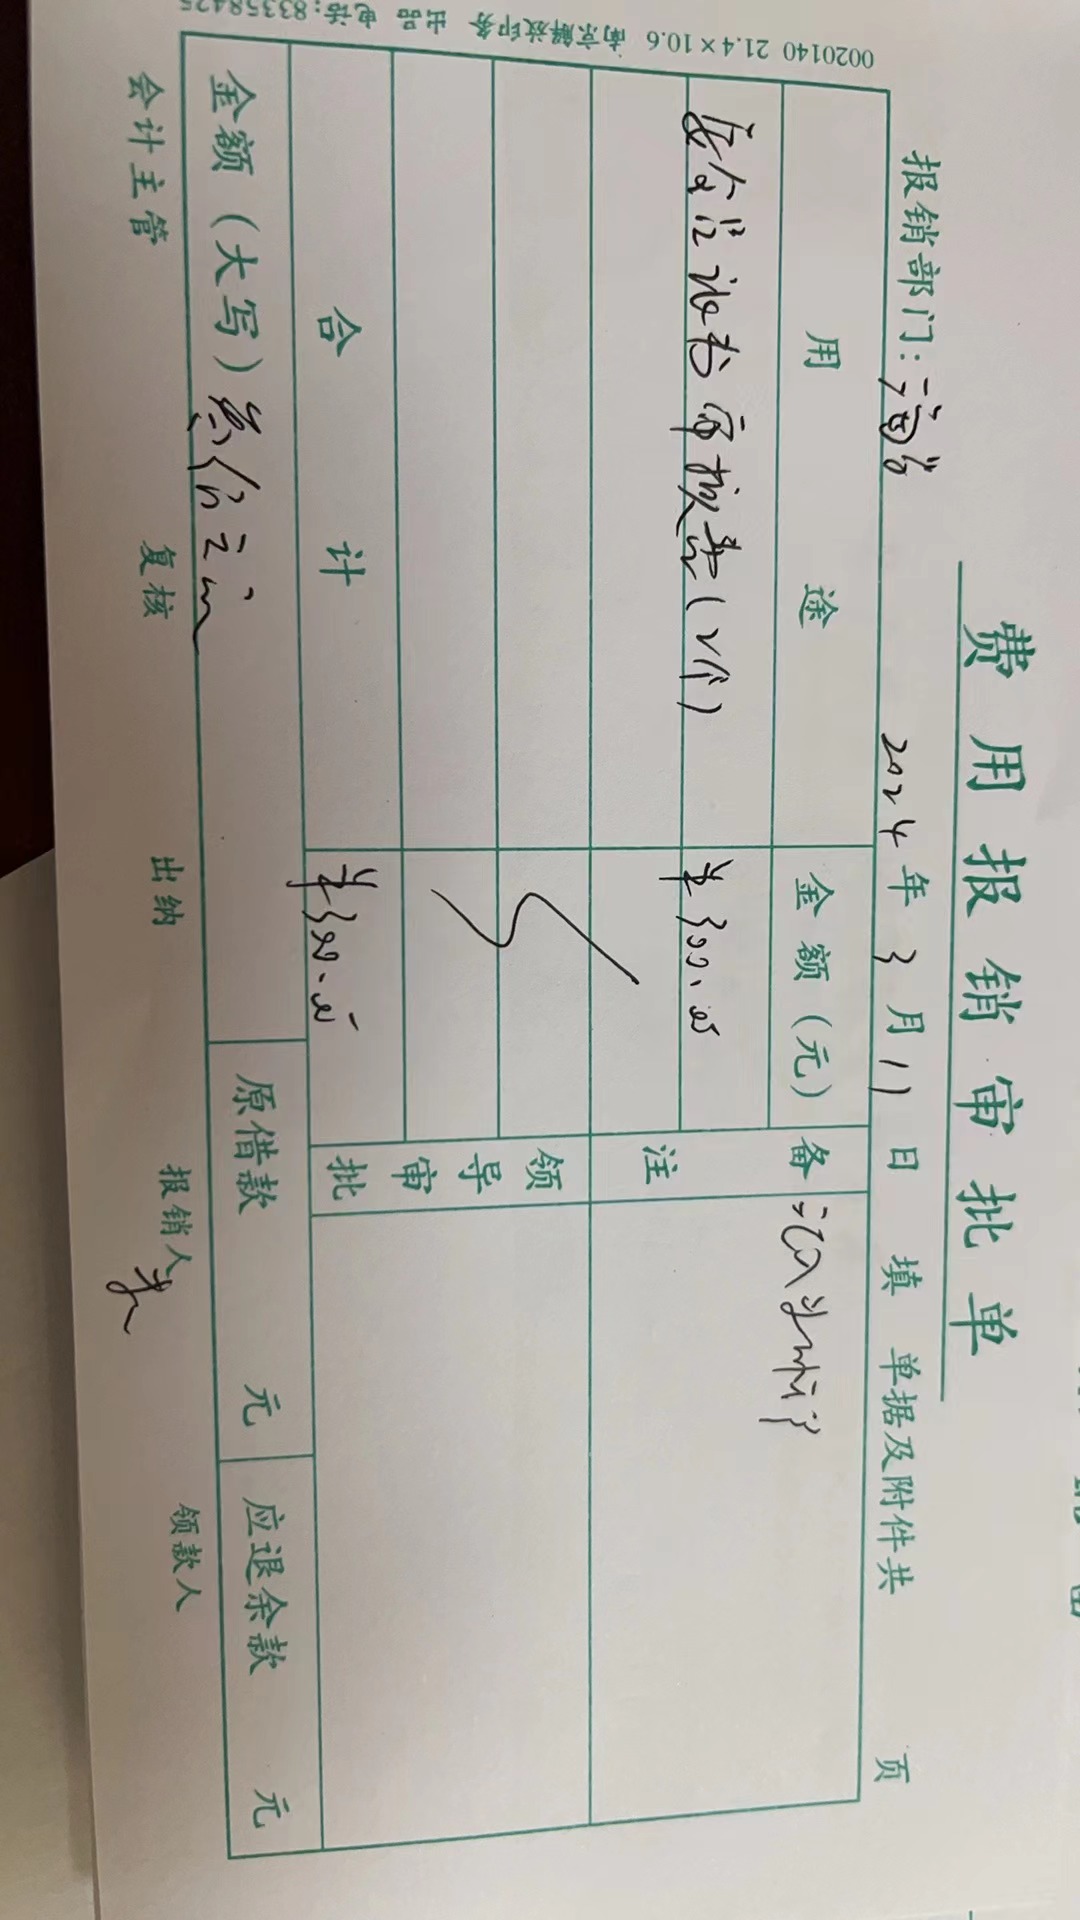 费用报销审批单
报销部门: 2024年3月11日 填 单据及附件共 页
用途 金额(元) 备注
安全证书审核费(2个) ¥300.00
领导审批
合计 ¥300.00
金额(大写)叁佰元 原借款 元 应退余款 元
会计主管 复核 出纳 报销人 领款人
0020140 21.4×10.6 南京解放印务 出品 电话:83358425